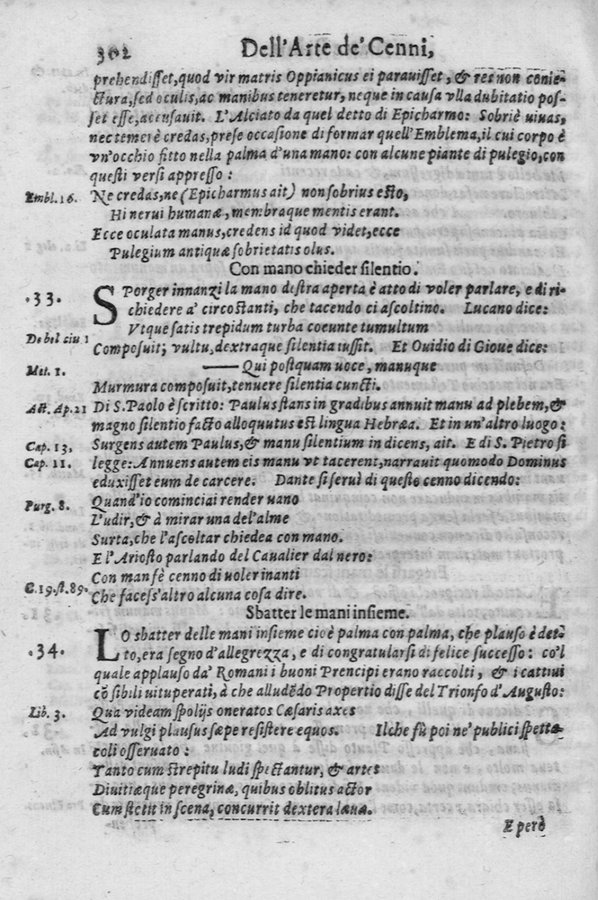 302 Dell'Arte de' Cenni,
prehendiſſet, quod vir matris Oppianicus ei parauiſſet, & res non conie-
ctura, ſed oculis, ac manibus teneretur, neque in cauſa vlla dubitatio poſ-
ſet eſſe, accusauit. L'Alciato da quel detto di Epicharmo: Sobriè viuas,
nec temerè credas, preſe occaſione di formar quell'Emblema, il cui corpo è
vn'occhio fitto nella palma d'vna mano: con alcune piante di pulegio, con
queſti verſi appreſſo:
Embl. 16. Ne credas, ne (Epicharmus ait) non ſobrius eſto,
Hi nerui humanæ, membraque mentis erant.
Ecce oculata manus, credens id quod videt, ecce
Pulegium antiquæ ſobrietatis olus.
Con mano chieder ſilentio.
·33· SPorger innanzi la mano deſtra aperta è atto di voler parlare, e di ri-
chiedere a' circoſtanti, che tacendo ci aſcoltino. Lucano dice:
Vtque ſatis trepidum turba coeunte tumultum
De bel ciu 1 Compoſuit; vultu, dextraque ſilentia iuſſit. Et Ouidio di Gioue dice:
Met. 1. —— Qui poſtquam uoce, manuque
Murmura compoſuit, tenuere ſilentia cuncti.
Act. Ap. 21 Di S. Paolo è ſcritto: Paulus ſtans in gradibus annuit manu ad plebem, &
magno ſilentio facto alloquutus eſt lingua Hebræa. Et in vn'altro luogo:
Cap. 13, Surgens autem Paulus, & manu ſilentium indicens, ait. E di S. Pietro ſi
Cap. 11. legge: Annuens autem eis manu vt tacerent, narrauit quomodo Dominus
eduxiſſet eum de carcere. Dante ſi ſeruì di queſto cenno dicendo:
Purg. 8. Quand'io cominciai render uano
L'udir, & à mirar una del'alme
Surta, che l'aſcoltar chiedea con mano.
E l'Arioſto parlando del Caualier dal nero:
Con man fè cenno di uoler inanti
C. 19. ſt. 89. Che faceſs'altro alcuna coſa dire.
Sbatter le mani inſieme.
·34· LO sbatter delle mani inſieme cioè palma con palma, che plauſo è det-
to, era ſegno d'allegrezza, e di congratularſi di felice ſucceſſo: co'l
quale applauſo da' Romani i buoni Prencipi erano raccolti, & i cattiui
cõ ſibili vituperati, à che alludẽdo Propertio diſſe del Trionfo d'Auguſto:
Lib. 3. Qua videam ſpolijs oneratos Cæſaris axes
Ad vulgi plauſus ſæpe reſiſtere equos. Ilche fù poi ne' publici ſpetta-
coli oſſeruato:
Tanto cum ſtrepitu ludi ſpectantur, & artes
Diuitiæque peregrinæ, quibus oblitus actor
Cum ſtetit in ſcena, concurrit dextera læuæ.
E però